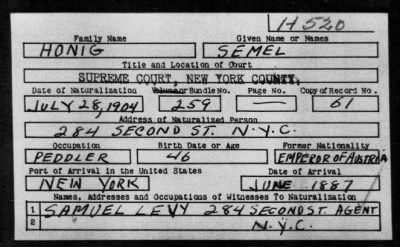 H 520
Family Name Given Name or Names
HONIG SEMEL
Title and Location of Court
SUPREME COURT, NEW YORK COUNTY,
Date of Naturalization Volume or Bundle No. Page No. Copy of Record No.
JULY 28, 1904 259 — 61
Address of Naturalized Person
284 SECOND ST. N.Y.C.
Occupation Birth Date or Age Former Nationality
PEDDLER 46 EMPEROR OF AUSTRIA
Port of Arrival in the United States Date of Arrival
NEW YORK JUNE 1887
Names, Addresses and Occupations of Witnesses To Naturalization
1 SAMUEL LEVY 284 SECOND ST. AGENT
2 N.Y.C.